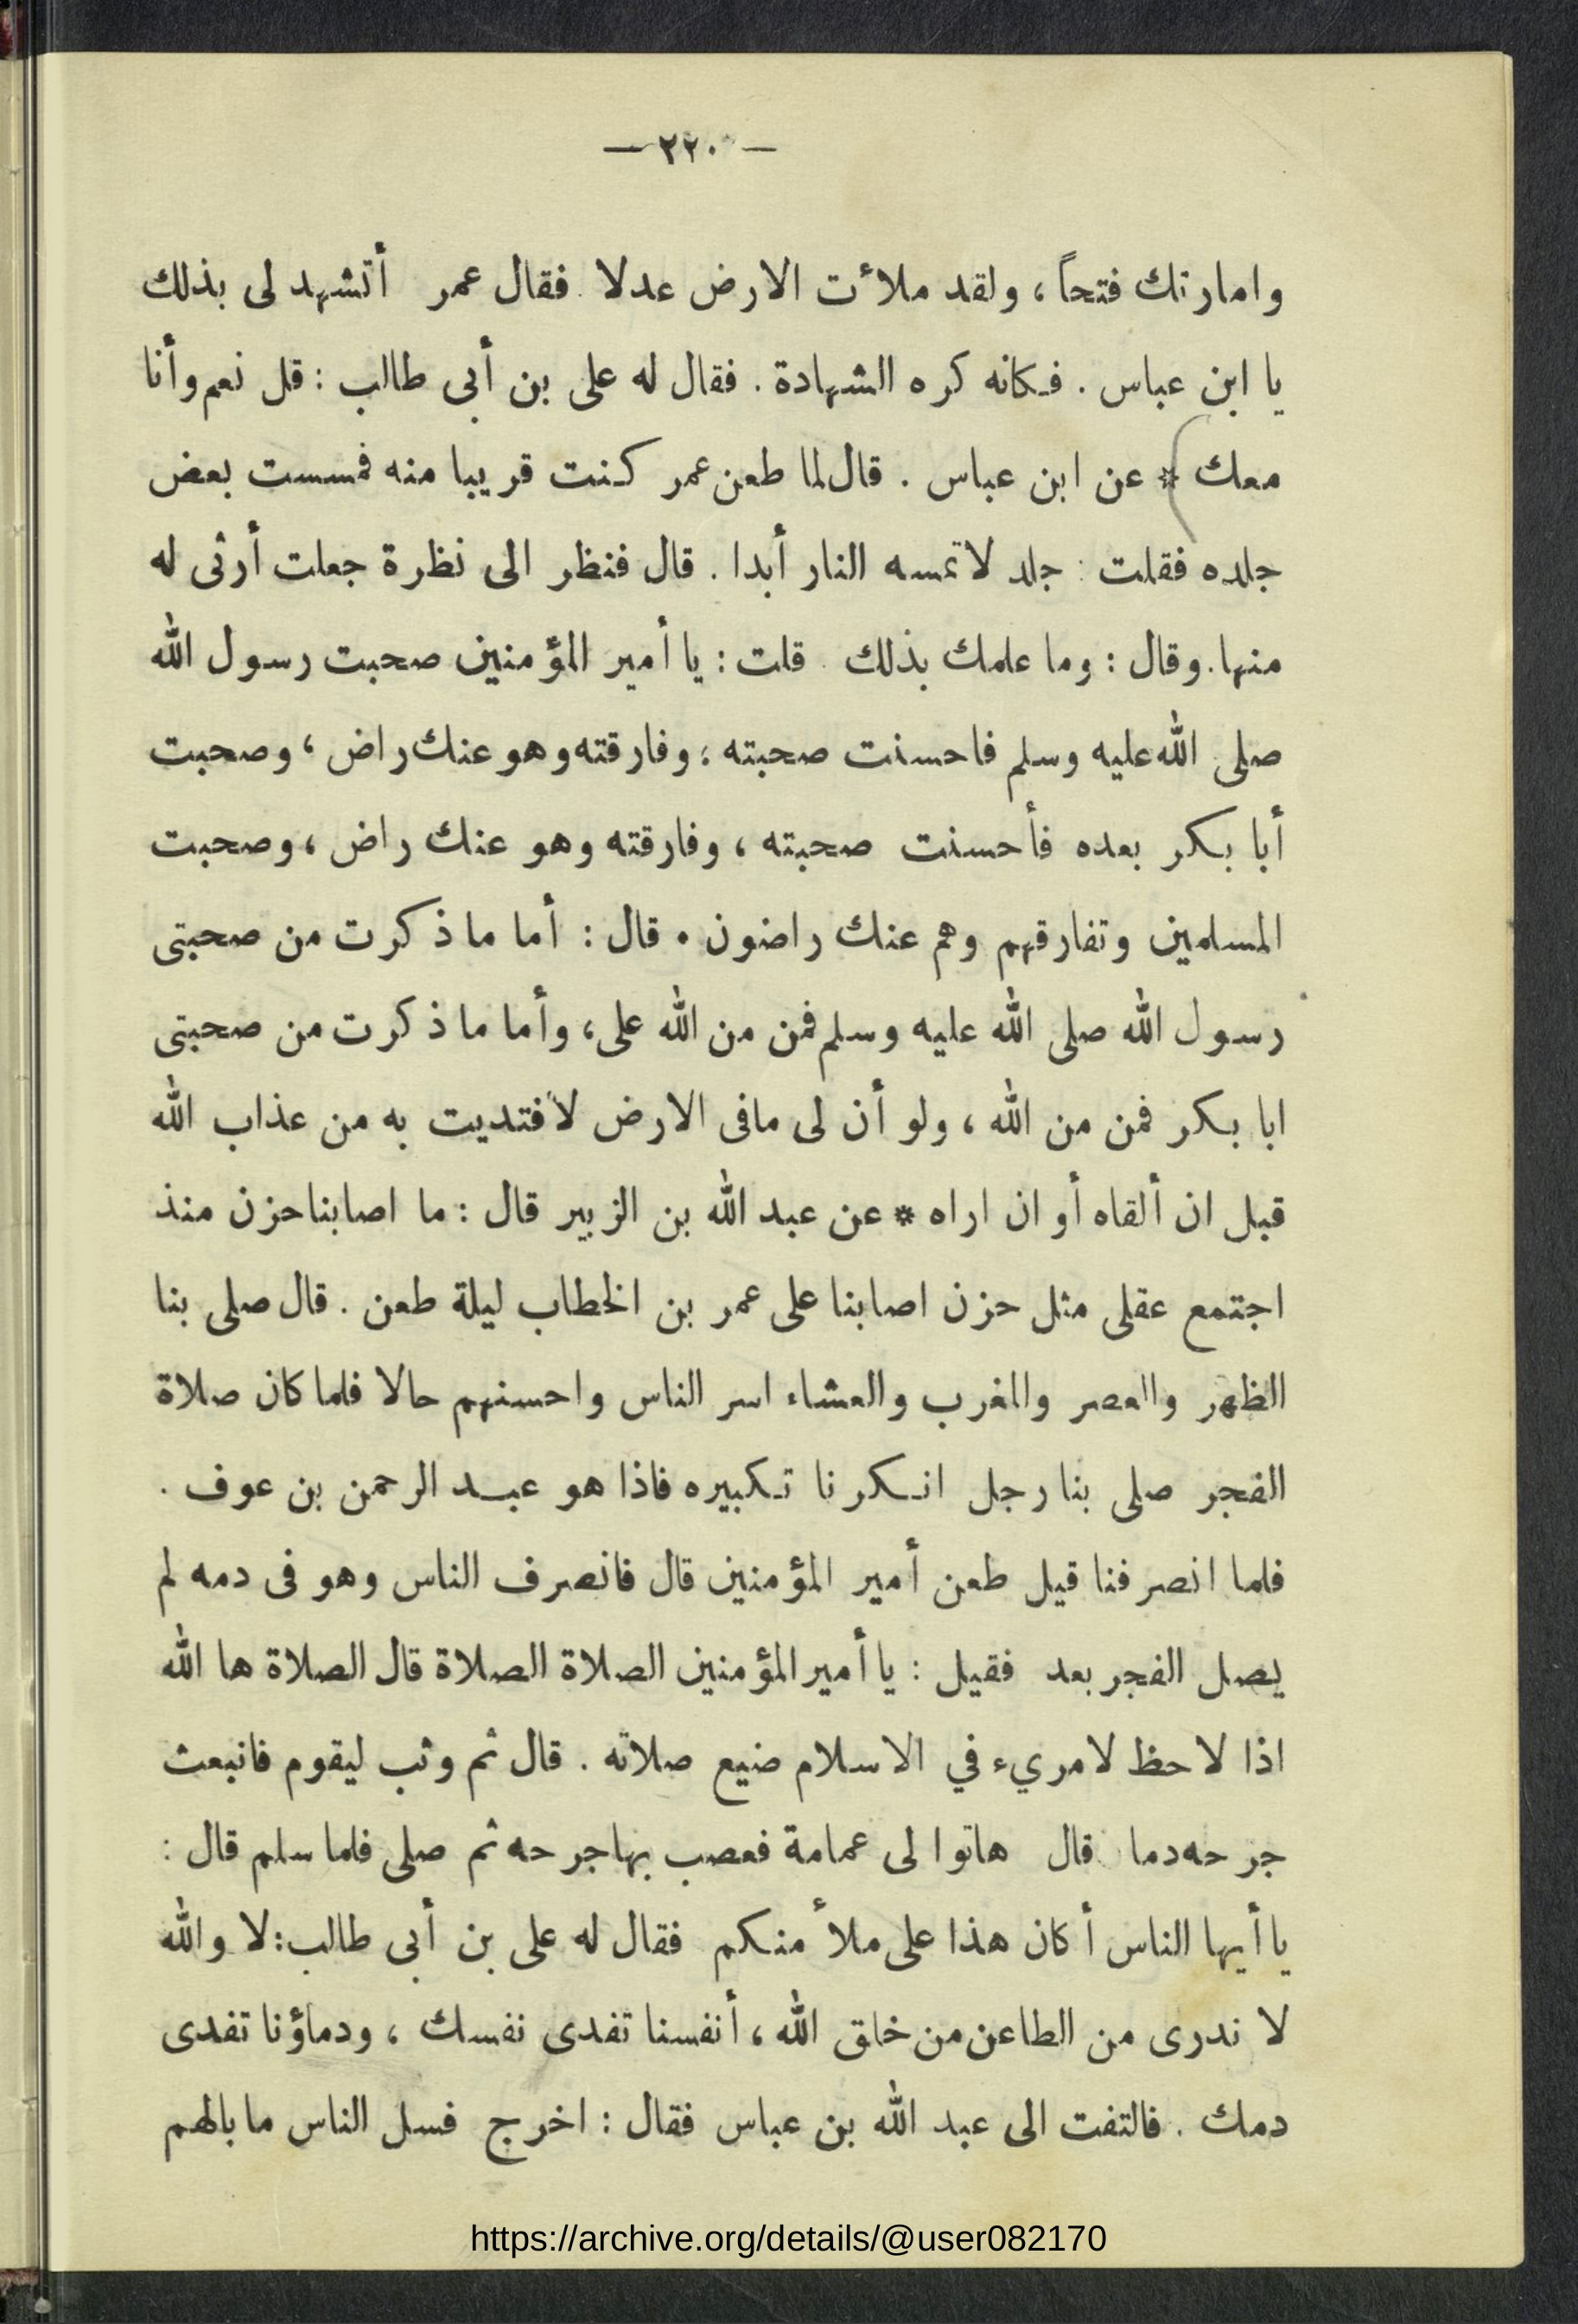 — ٢٢٠ —
وامارتك فتحاً ، ولقد ملأت الارض عدلا . فقال عمر أتشهد لى بذلك
يا ابن عباس . فكانه كره الشهادة . فقال له على بن أبى طالب : قل نعم وأنا
معك * عن ابن عباس . قال لما طعن عمر كنت قريبا منه فمسست بعض
جلده فقلت : جلد لا تمسه النار أبدا . قال فنظر الى نظرة جعلت أرثى له
منها . وقال : وما علمك بذلك . قلت : يا أمير المؤمنين صحبت رسول الله
صلى الله عليه وسلم فاحسنت صحبته ؛ وفارقته وهو عنك راض ، وصحبت
أبا بكر بعده فأحسنت صحبته ، وفارقته وهو عنك راض ، وصحبت
المسلمين وتفارقهم وهم عنك راضون . قال : أما ما ذكرت من صحبتى
رسول الله صلى الله عليه وسلم فمن من الله على ، وأما ما ذكرت من صحبتى
ابا بكر فمن من الله ، ولو أن لى مافى الارض لافتديت به من عذاب الله
قبل ان ألقاه أو ان اراه * عن عبد الله بن الزبير قال : ما اصابنا حزن منذ
اجتمع عقلى مثل حزن اصابنا على عمر بن الخطاب ليلة طعن . قال صلى بنا
الظهر والعصر والمغرب والعشاء اسر الناس واحسنهم حالا فلما كان صلاة
الفجر صلى بنا رجل انكرنا تكبيره فاذا هو عبد الرحمن بن عوف .
فلما انصرفنا قيل طعن أمير المؤمنين قال فانصرف الناس وهو فى دمه لم
يصل الفجر بعد فقيل : يا أمير المؤمنين الصلاة الصلاة قال الصلاة ها الله
اذا لا حظ لامريء في الاسلام ضيع صلاته . قال ثم وثب ليقوم فانبعث
جرحه دما . قال هاتوا لى عمامة فعصب بها جرحه ثم صلى فلما سلم قال :
يا أيها الناس أكان هذا على ملأ منكم فقال له على بن أبى طالب : لا والله
لا ندرى من الطاعن من خلق الله ، أنفسنا تفدى نفسك ، ودماؤنا تفدى
دمك . فالتفت الى عبد الله بن عباس فقال : اخرج فسل الناس ما بالهم
https://archive.org/details/@user082170